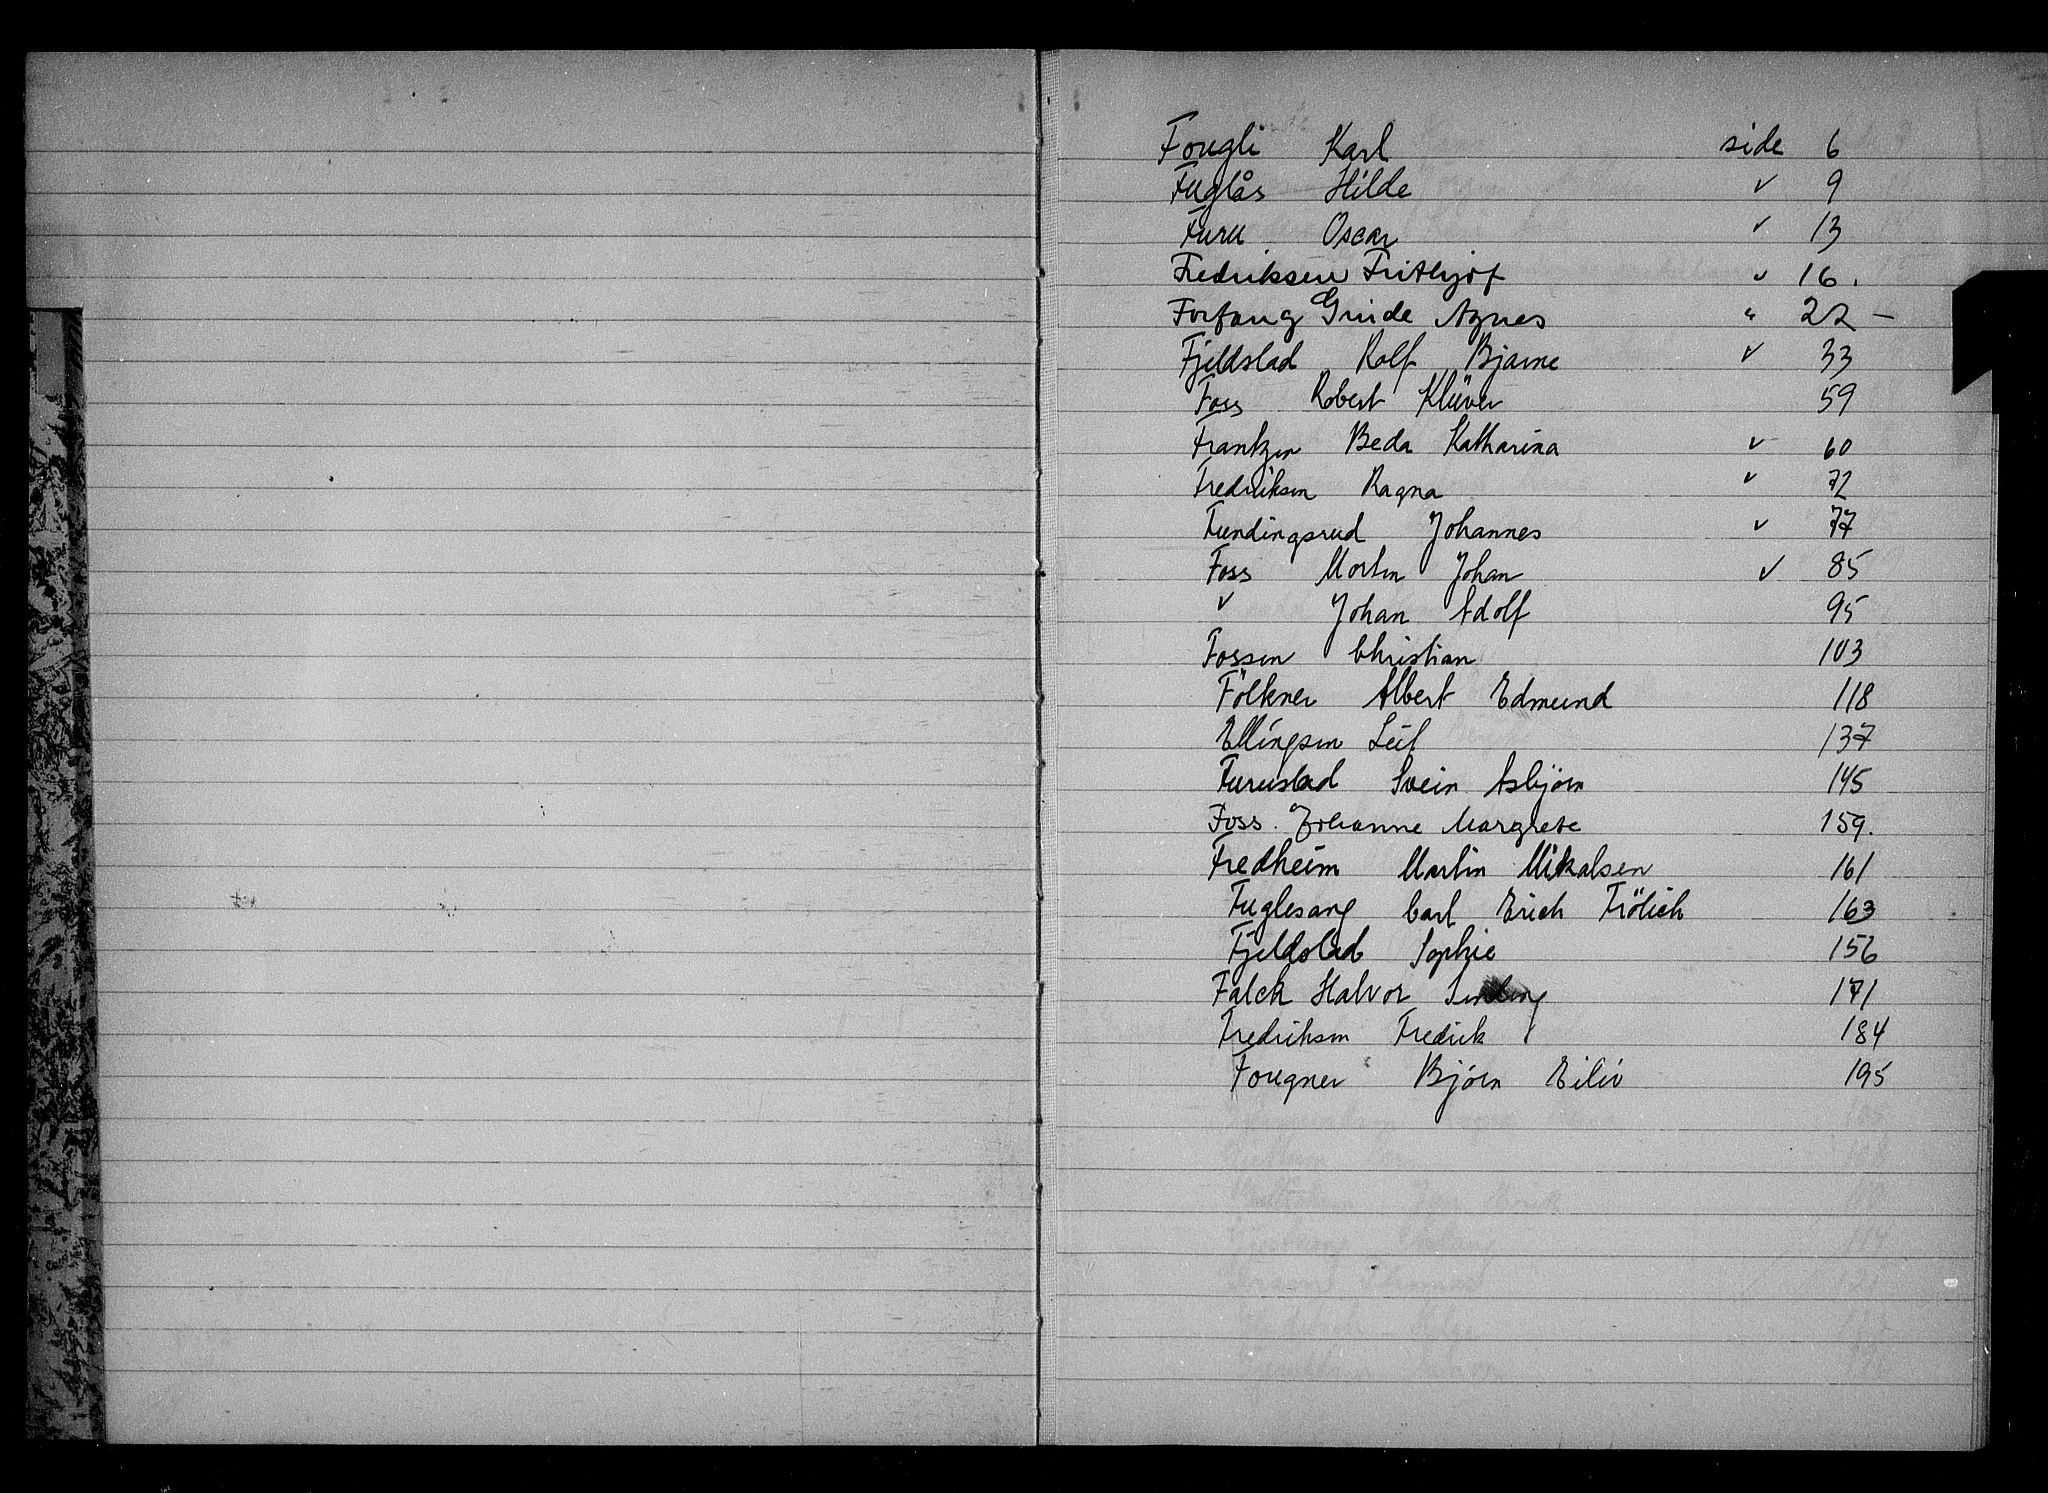 Fougli Karl side 6
Fuglås Hilde " 9
Furu Oscar " 13
Fredriksen Frithjof " 16.
Forfang Grude Agnes " 22 –
Fjeldstad Rolf Bjarne " 33
Foss Robert Klüver 59
Frantzen Beda Katharina " 60
Fredriksen Ragna " 72
Fundingsrud Johannes " 77
Foss Morten Johan " 85
" Johan Adolf 95
Fossen Christian 103
Fölkner Albert Edmund 118
Ellingsen Leif 137
Furustad Svein Asbjörn 145
Foss. Johanne Margrete 159.
Fredheim Martin Mikalsen 161
Fuglesang Carl Erich Frölich 163
Fjeldstad Sophie 156
Falck Halvor 171
Fredriksen Fredrik 184
Fougner Bjørn Eiliv 195